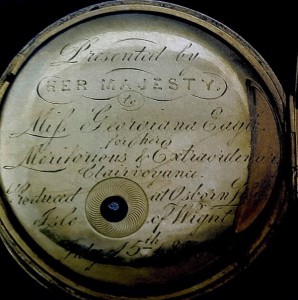 Presented by
HER MAJESTY.
to
Miſs Georgiana Eagle
for her
Meritorious & Extraordinary
Clairvoyance.
Produced at Osborn
Isle of Wight
July 15th